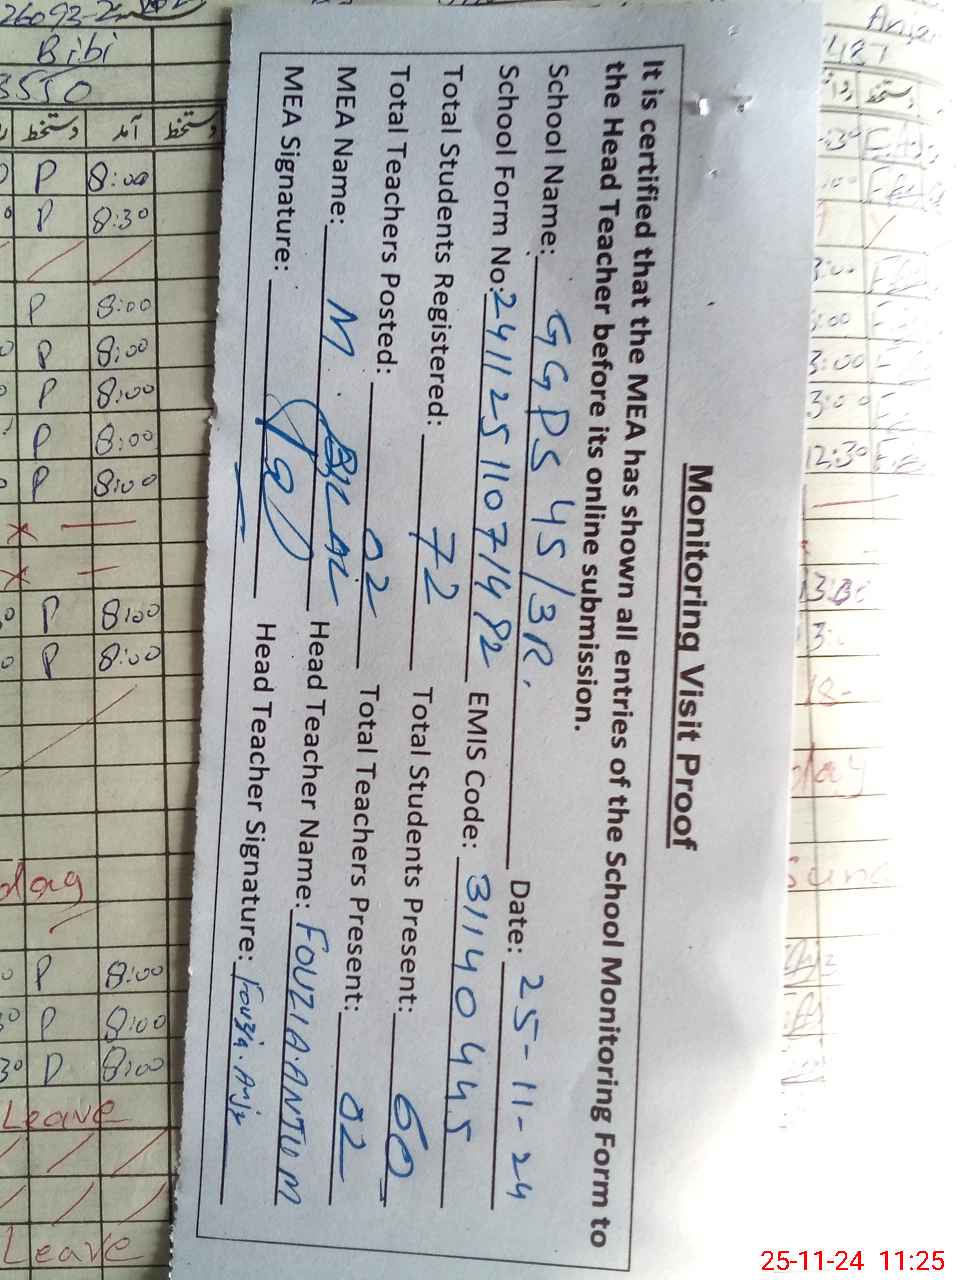 Monitoring Visit Proof
It is certified that the MEA has shown all entries of the School Monitoring Form to
the Head Teacher before its online submission.
School Name: GGPS 45/3R. Date: 25-11-24
School Form No: 241125110714 82 EMIS Code: 31140445
Total Students Registered: 72 Total Students Present: 60
Total Teachers Posted: 02 Total Teachers Present: 02
MEA Name: M. BILAL Head Teacher Name: FOUZIA.ANJUM
MEA Signature: Head Teacher Signature: Fouzia.Anj
Bibi
3550
دستخط آمد دستخط
P 8:00
P 8:30
P 8:00
P 8:00
P 8:00
P 8:00
P 8:00
P 8:00
P 8:00
day
P 8:00
P 8:00
P 8:00
Leave
Leave
487
دستخط
3:00
3:00
12:30
25-11-24 11:25